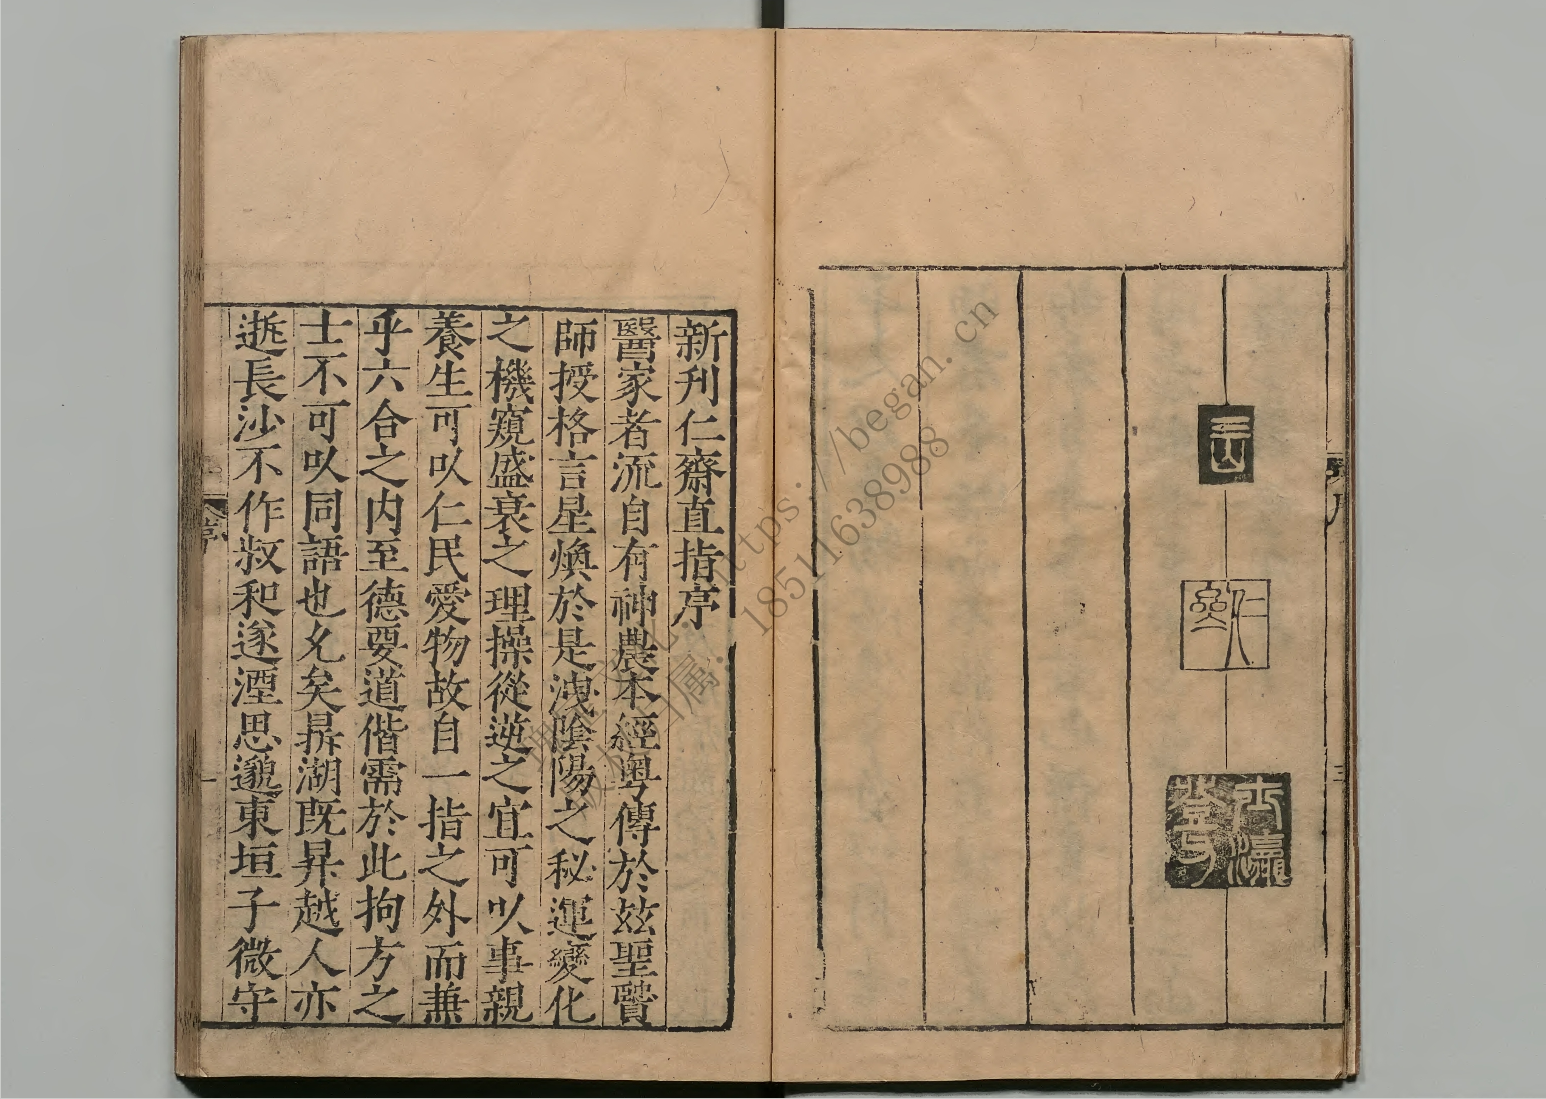 新刋仁齋直指序
醫家者流自有神農本經粤傳於玆聖賢
師授格言星煥於是洩陰陽之秘運變化
之機窺盛衰之理操從逆之宜可以事親
養生可以仁民愛物故自一指之外而兼
乎六合之内至德要道偕需於此拘方之
士不可以同語也久矣鼎湖既昇越人亦
逝長沙不作叔和遂湮思邈東垣子微守
一
https://began.cn
18511638988